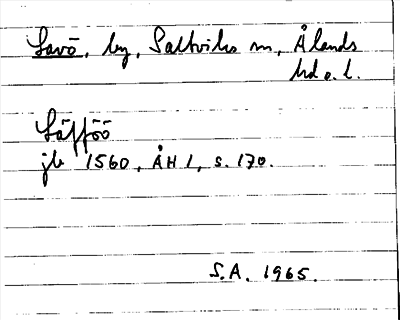 Lavö, by, Saltviks sn, Ålands
hd o. l.
Läfföö
jb 1560, ÅH 1, s. 170.
S.A. 1965.